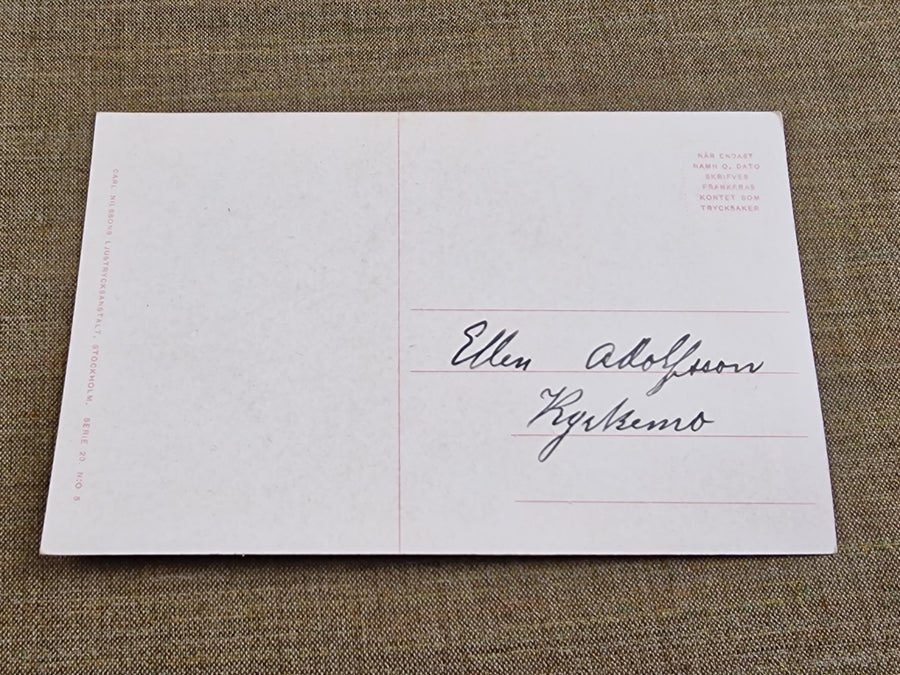 CARL NILSSONS LJUSTRYCKSANSTALT, STOCKHOLM. SERIE 20 N:O 8
NÄR ENDAST
NAMN O. DATO
SKRIFVES
FRANKERAS
KORTET SOM
TRYCKSAKER
Ellen Adolfsson
Kyrkemo